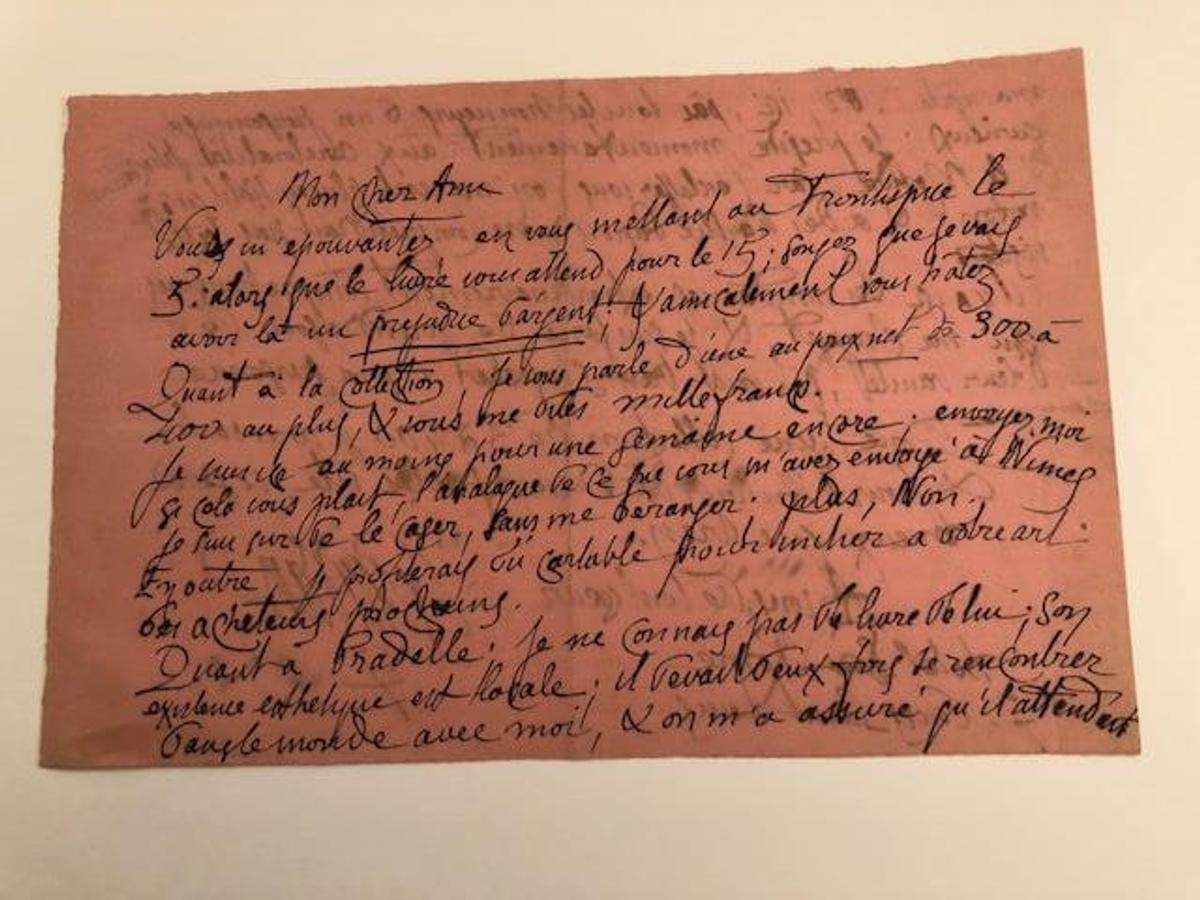 Mon cher Ami
Vous m'epouvantez en vous mettant au Frontispice le
5. alors que le livre vous attend pour le 15; songez que je vais
avoir là un prejudice d'argent; & amicalement vous hâtez
Quant à la collection je vous parle d'une au prix net de 300 à
400 au plus, & vous me dites mille francs.
Je suis ici au moins pour une semaine encore; envoyez moi
si cela vous plait, l'analogue de ce que vous m'avez envoyé à Nimes
je suis sur de le caser, sans me deranger. plus, Non.
En outre, je profiterais du cartable pour à votre art
des acheteurs prochains.
Quant à Pradelle. je ne connais pas de livre de lui; son
existence esthetique est locale; il devait deux fois se rencontrer
dans le monde avec moi, & on m'a assuré qu'il attendait